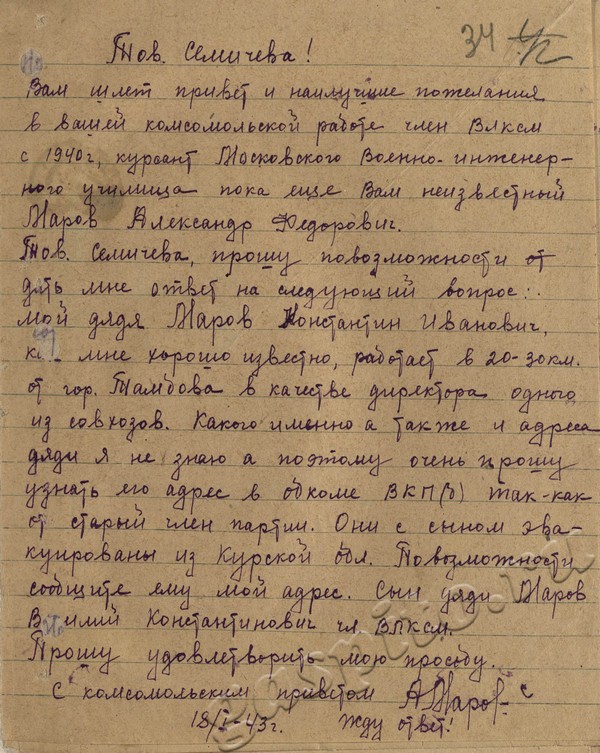 34
Тов. Семичева!
Вам шлет привет и наилучшие пожелания
в вашей комсомольской работе член ВЛКСМ
с 1940 г, курсант Московского Военно-инженер-
ного училища пока еще Вам неизвестный
Жаров Александр Федорович.
Тов. Семичева, прошу повозможности от
дать мне ответ на следующий вопрос:
мой дядя Жаров Константин Иванович,
мне хорошо известно, работает в 20-30 км.
от гор. Тамбова в качестве директора одного
из совхозов. Какого именно а также и адреса
дяди я не знаю а поэтому очень прошу
узнать его адрес в обкоме ВКП(б) так-как
старый член партии. Они с сыном эва-
куированы из Курской обл. Повозможности
сообщите ему мой адрес. Сын дяди Жаров
Константинович чл ВЛКСМ.
Прошу удовлетворить мою просьбу.
С комсомольским приветом АЖаров
18/I-43г. Жду ответ!
gaspito.ru